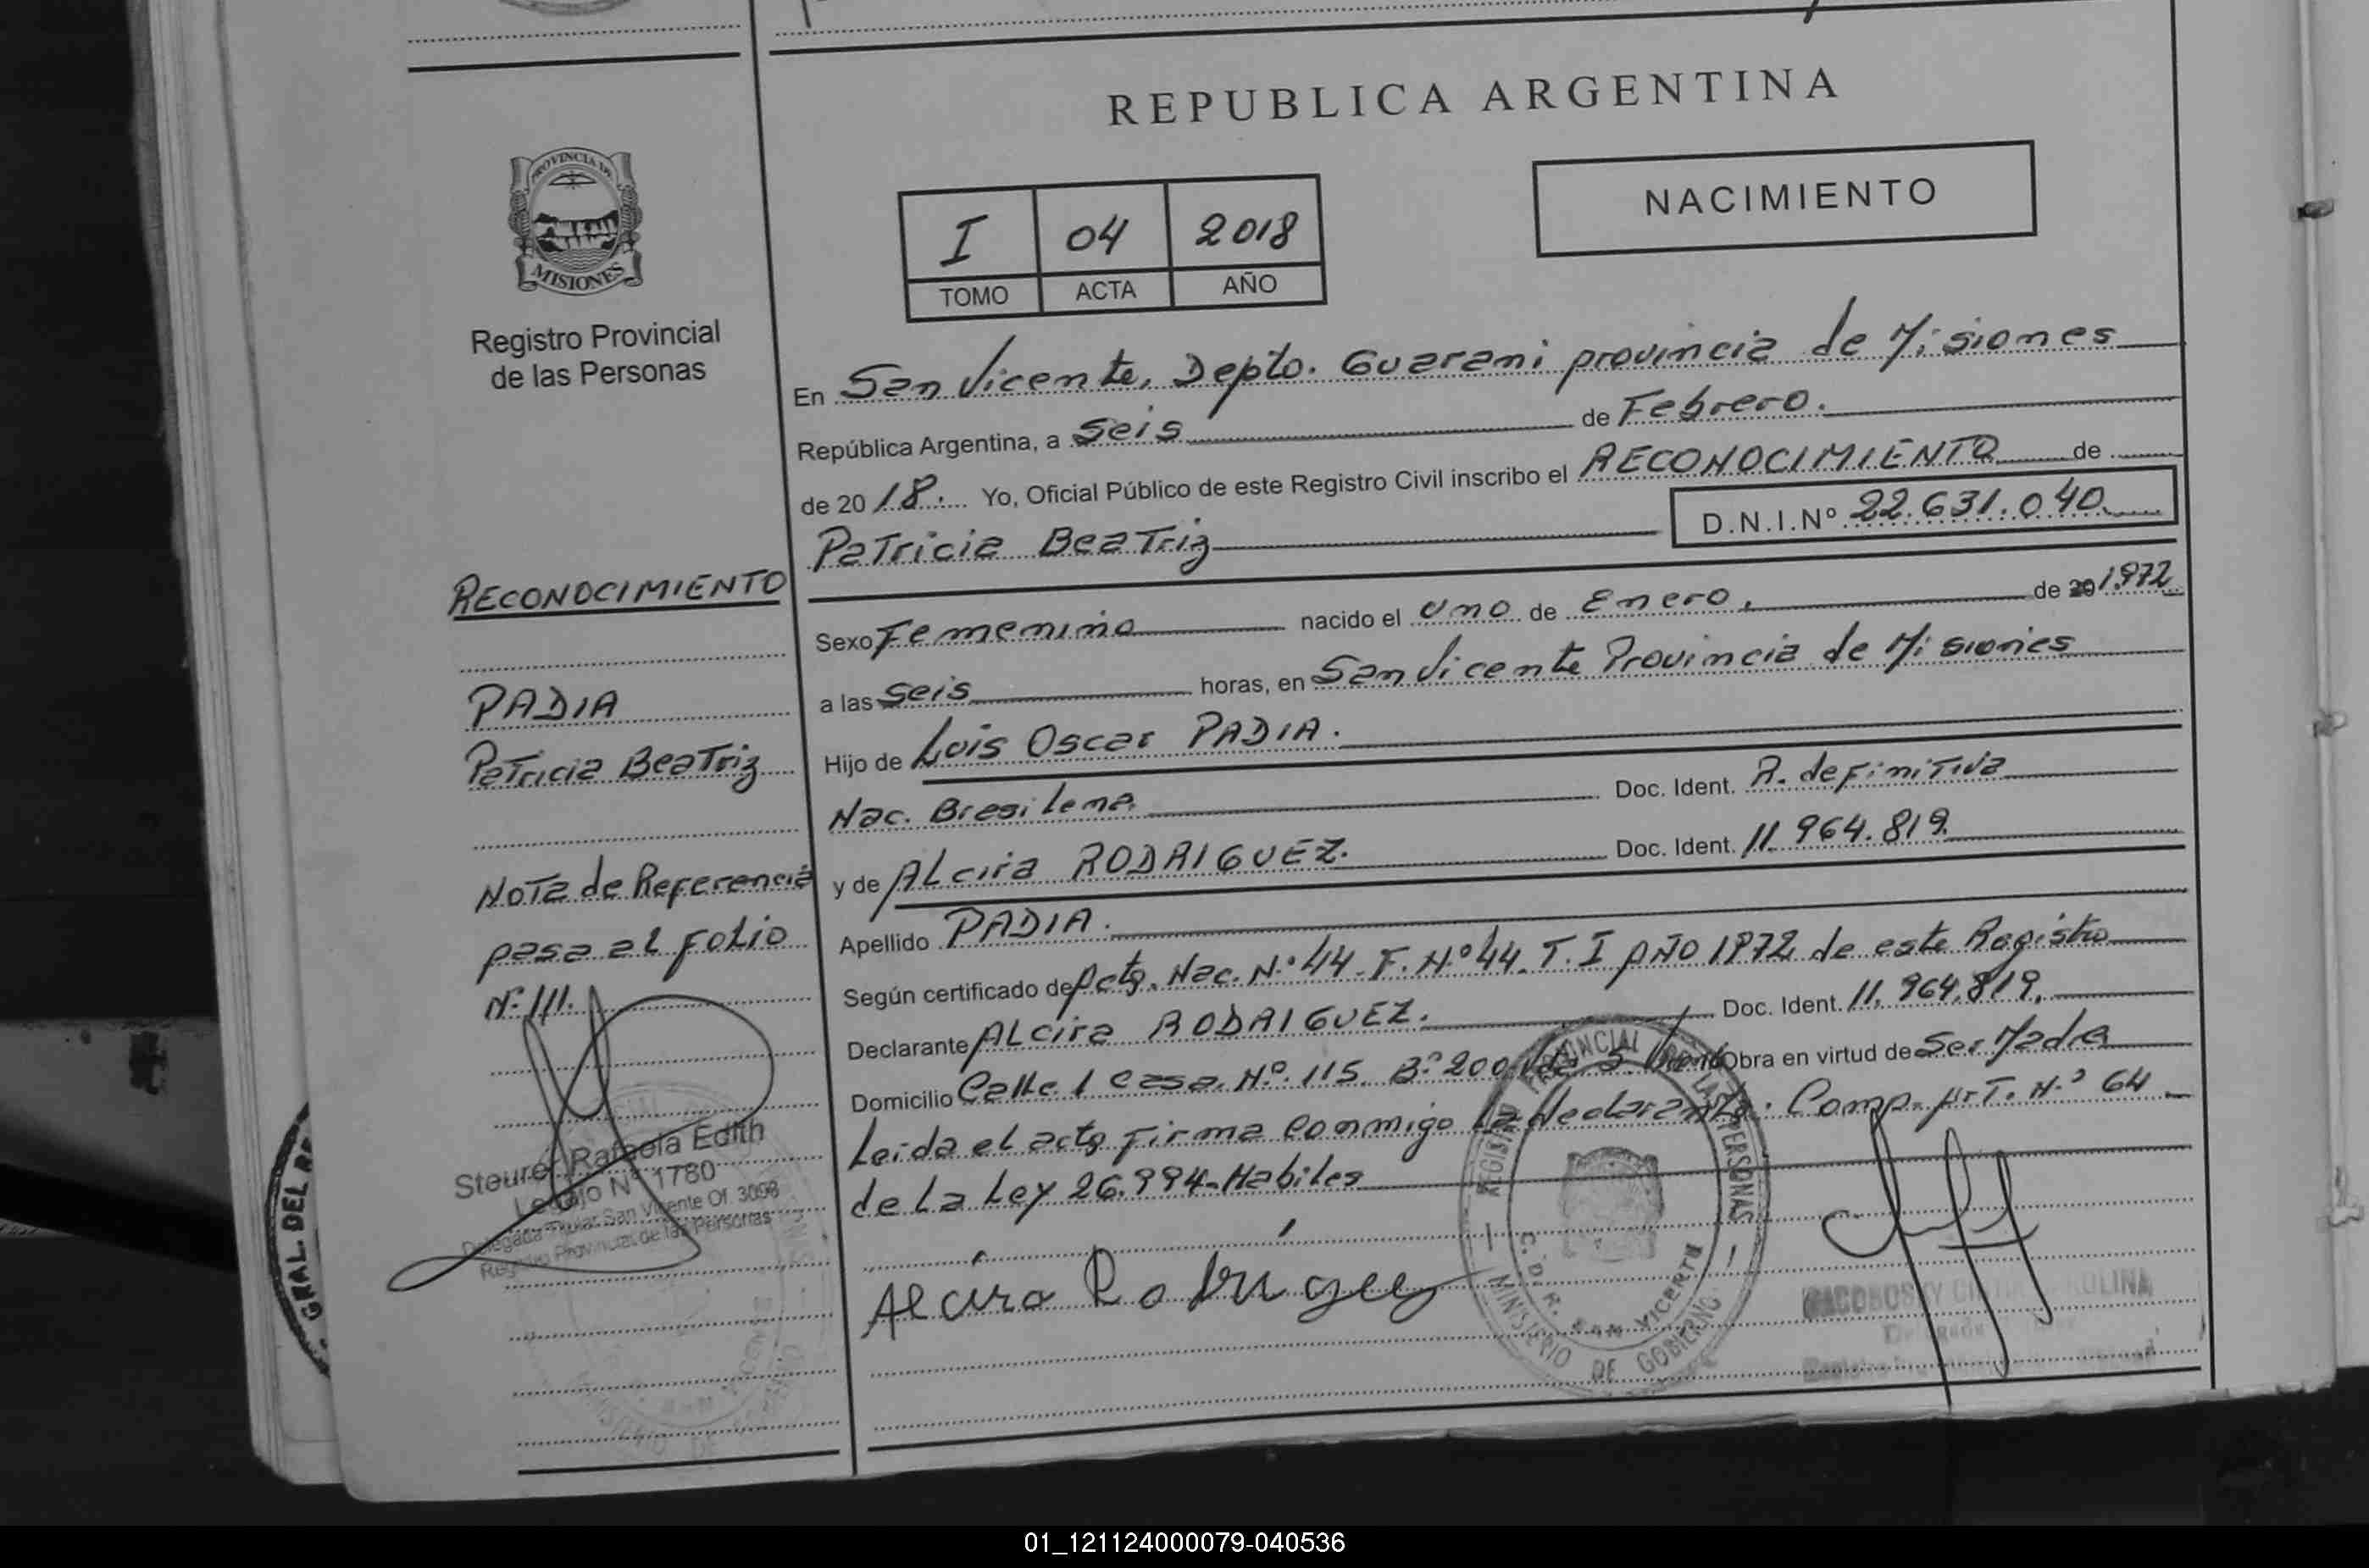 REPUBLICA ARGENTINA
NACIMIENTO
I 04 2018
TOMO ACTA AÑO
PROVINCIA DE
MISIONES
Registro Provincial
de las Personas
RECONOCIMIENTO
PADIA
Patricia Beatriz
Nota de Referencia
pasa al folio
Nº 111.
Steurer Rafaela Edith
Legajo Nº 1780
Delegada Titular San Vicente Of. 3098
Registro Provincial de las Personas
En San Vicente, Depto. Guarani provincia de Misiones
República Argentina, a Seis de Febrero.
de 20 18. Yo, Oficial Público de este Registro Civil inscribo el RECONOCIMIENTO de
Patricia Beatriz D.N.I.Nº 22.631.040
Sexo Femenino nacido el uno de Enero, de 20 1.972
a las seis horas, en San Vicente Provincia de Misiones
Hijo de Luis Oscar PADIA.
Nac. Brasilena Doc. Ident. R. definitiva
y de Alcira RODRIGUEZ. Doc. Ident. 11.964.819.
Apellido PADIA.
Según certificado de Acta. Nac. Nº 44 F. Nº 44 T. I AÑO 1972 de este Registro
Declarante Alcira RODRIGUEZ. Doc. Ident. 11.964.819.
Domicilio Calle 1 Casa Nº 115 Bº 200 Obra en virtud de Ser Madre
Leida el acta Firma conmigo la declarante. Comp. Art. Nº 64
de La Ley 26.994-Habiles
Alcira Rodriguez
REGISTRO PROVINCIAL DE LAS PERSONAS
MINISTERIO DE GOBIERNO
C.D.R. SAN VICENTE
GRAL. DEL
01_121124000079-040536